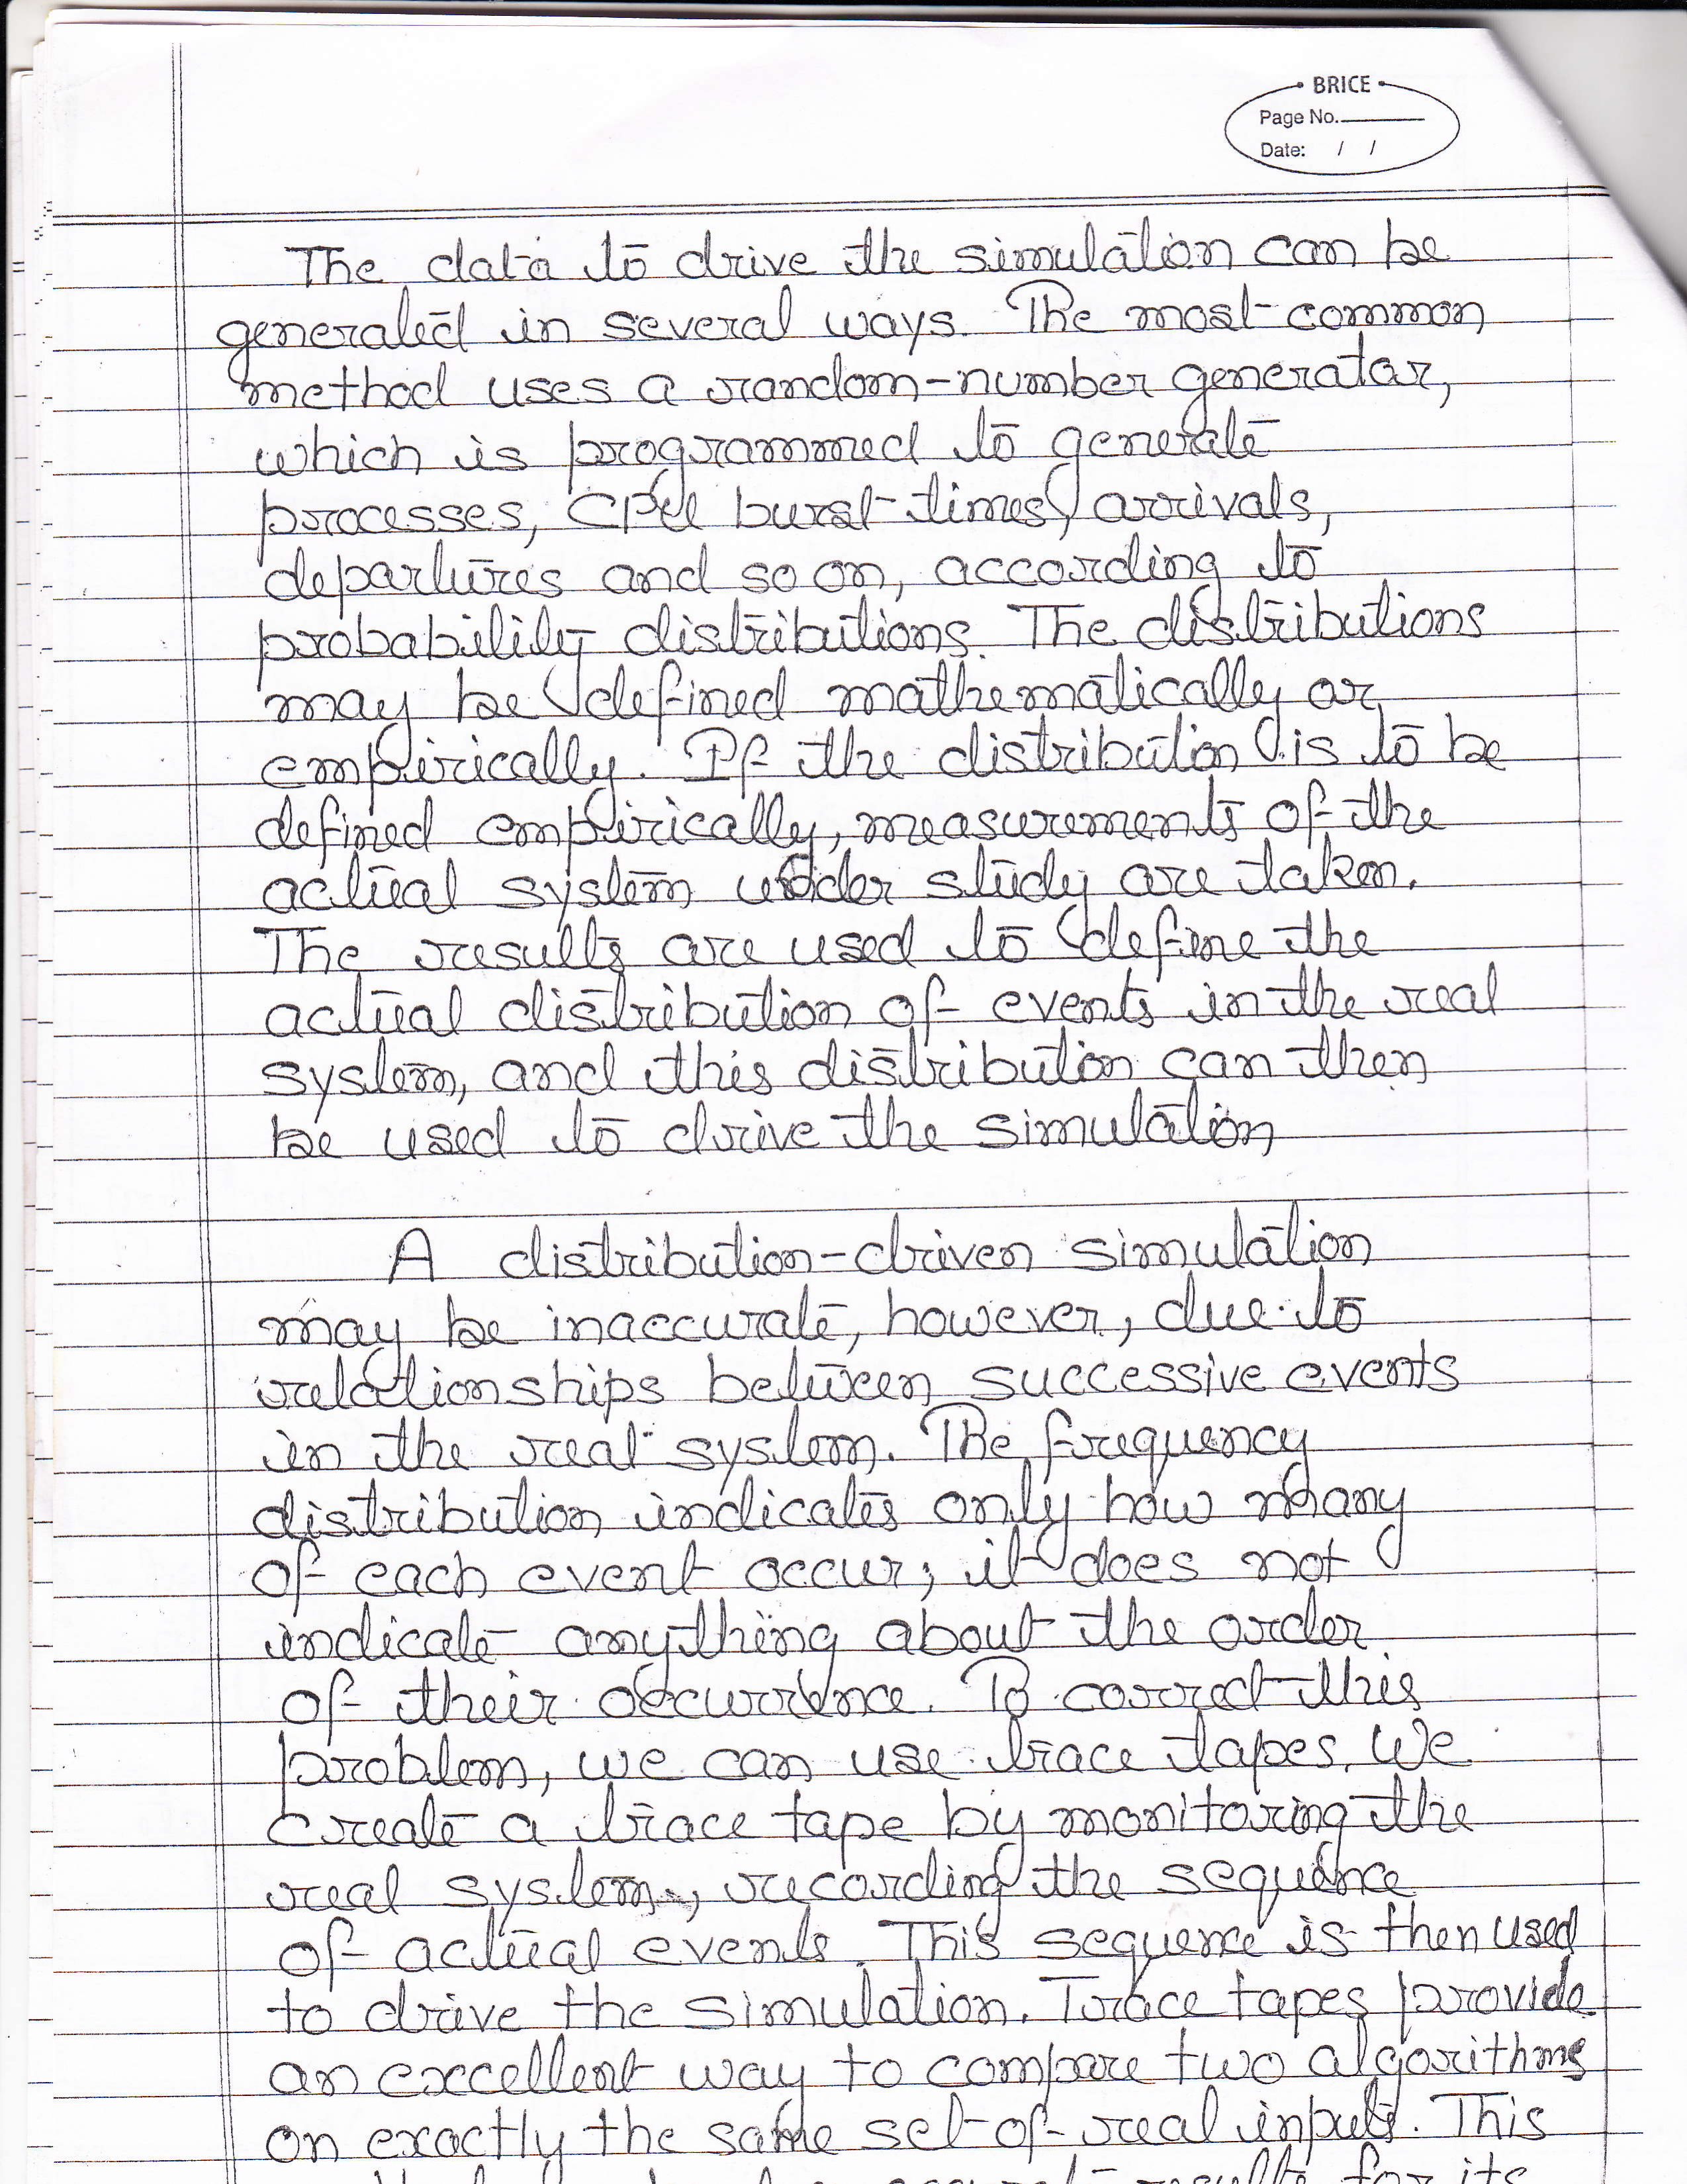 BRICE
Page No.
Date: / /
The data to drive the simulation can be
generated in several ways. The most common
method uses a random-number generator,
which is programmed to generate
processes, CPU burst times, arrivals,
departures and so on, according to
probability distributions. The distributions
may be defined mathematically or
empirically. If the distribution is to be
defined empirically, measurements of the
actual system under study are taken.
The results are used to define the
actual distribution of events in the real
system, and this distribution can then
be used to drive the simulation
A distribution-driven simulation
may be inaccurate, however, due to
relationships between successive events
in the real system. The frequency
distribution indicates only how many
of each event occur; it does not
indicate anything about the order
of their occurrence. To correct this
problem, we can use trace tapes. We
create a trace tape by monitoring the
real system, recording the sequence
of actual events. This sequence is then used
to drive the simulation. Trace tapes provide
an excellent way to compare two algorithms
on exactly the same set of real inputs. This
results for its